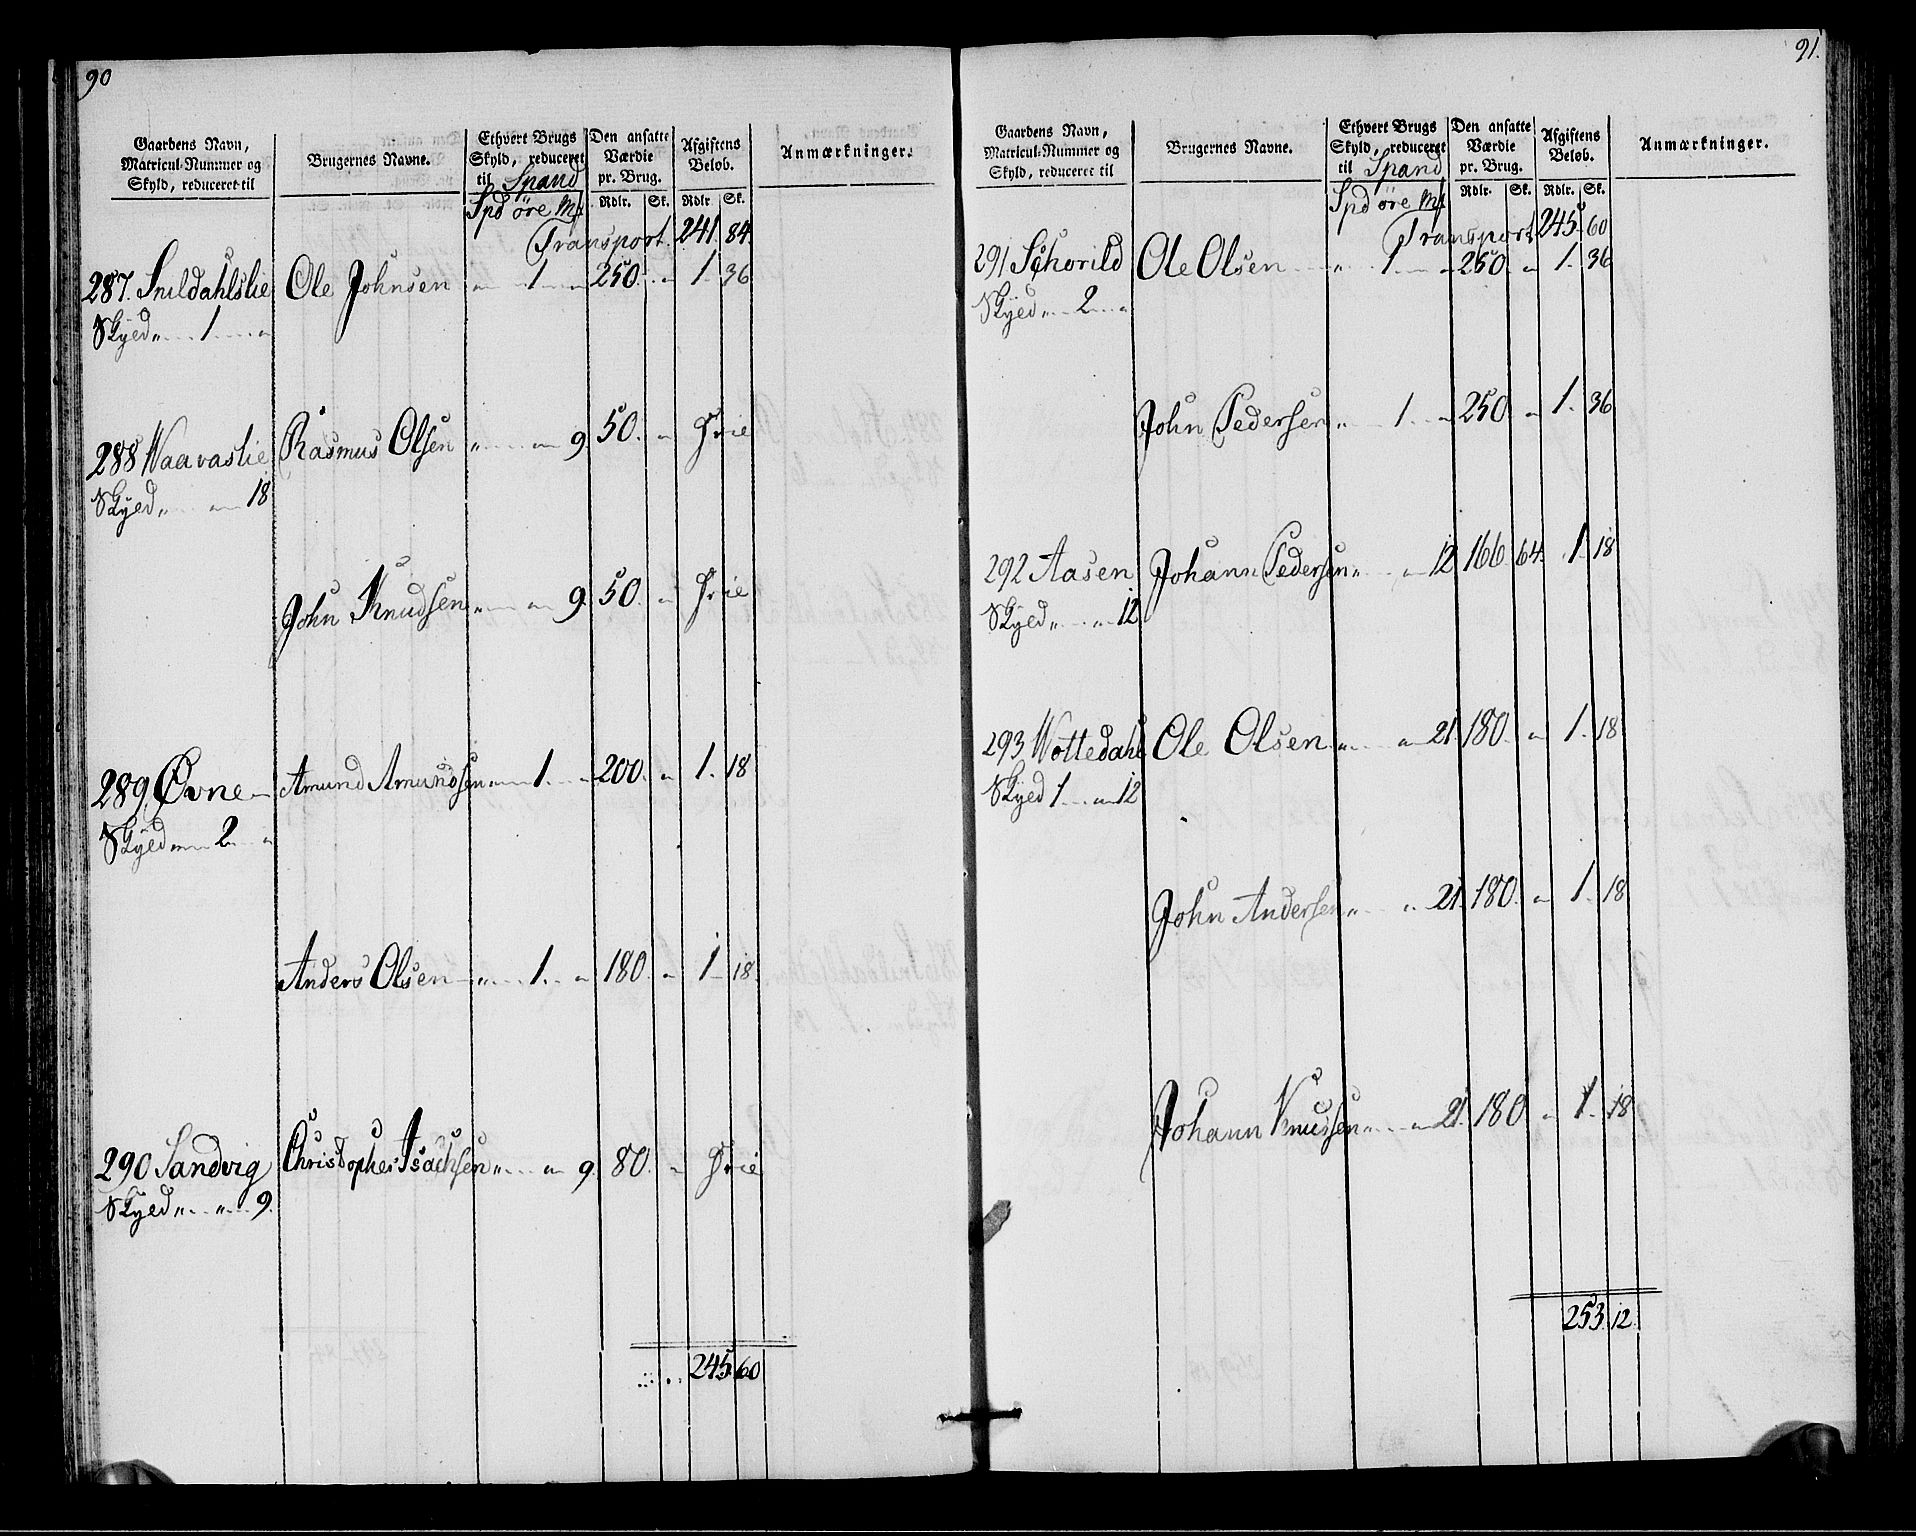 90
Gaardens Navn, Matricul-Nummer og Skyld, reduceret til
Brugernes Navne.
Ethvert Brugs Skyld, reduceret til Spand
Den ansatte Værdie pr. Brug.
Afgiftens Beløb.
Anmærkninger.
Spd øre Mf
Rdlr. Sk. Rdlr Sk.
Transport 241 84
287. Snildahlslie Ole Johnsen " 1 " 250. " 1. 36
Skyed " 1 "
288 Waavaslie Rasmus Olsen " " 9 50. " Frie
Skyed " " 18
John Knudsen " " 9. 50. " Frie
289 Øvne Amund Amundsen " 1. " 200. " 1. 18
Skyed " 2 "
Anders Olsen " 1. " 180. " 1 18.
290 Sandvig Christopher Isachsen " " 9. 80. " Frie
Skyed " " 9.
245 60
91.
Gaardens Navn, Matricul-Nummer og Skyld, reduceret til
Brugernes Navne.
Ethvert Brugs Skyld, reduceret til Spand
Den ansatte Værdie pr. Brug.
Afgiftens Beløb.
Anmærkninger.
Spd øre Mf
Rdlr. Sk. Rdlr. Sk.
Transport 245 60
291 Schorild Ole Olsen " 1 " 250. " 1. 36
Skyed " 2 "
John Pedersen " 1. " 250 " 1. 36
292 Aasen Johann Pedersen " " 12 166 64. 1. 18
Skyed " " 12
293 Wottedahl Ole Olsen " " 21. 180. " 1. 18
Skyed 1 " 12
John Andersen " " 21. 180. " 1. 18
Johann Knudsen " " 21. 180 " 1. 18
253. 12.